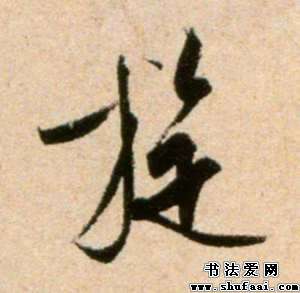 旋
书法爱网
www.shufaai.com